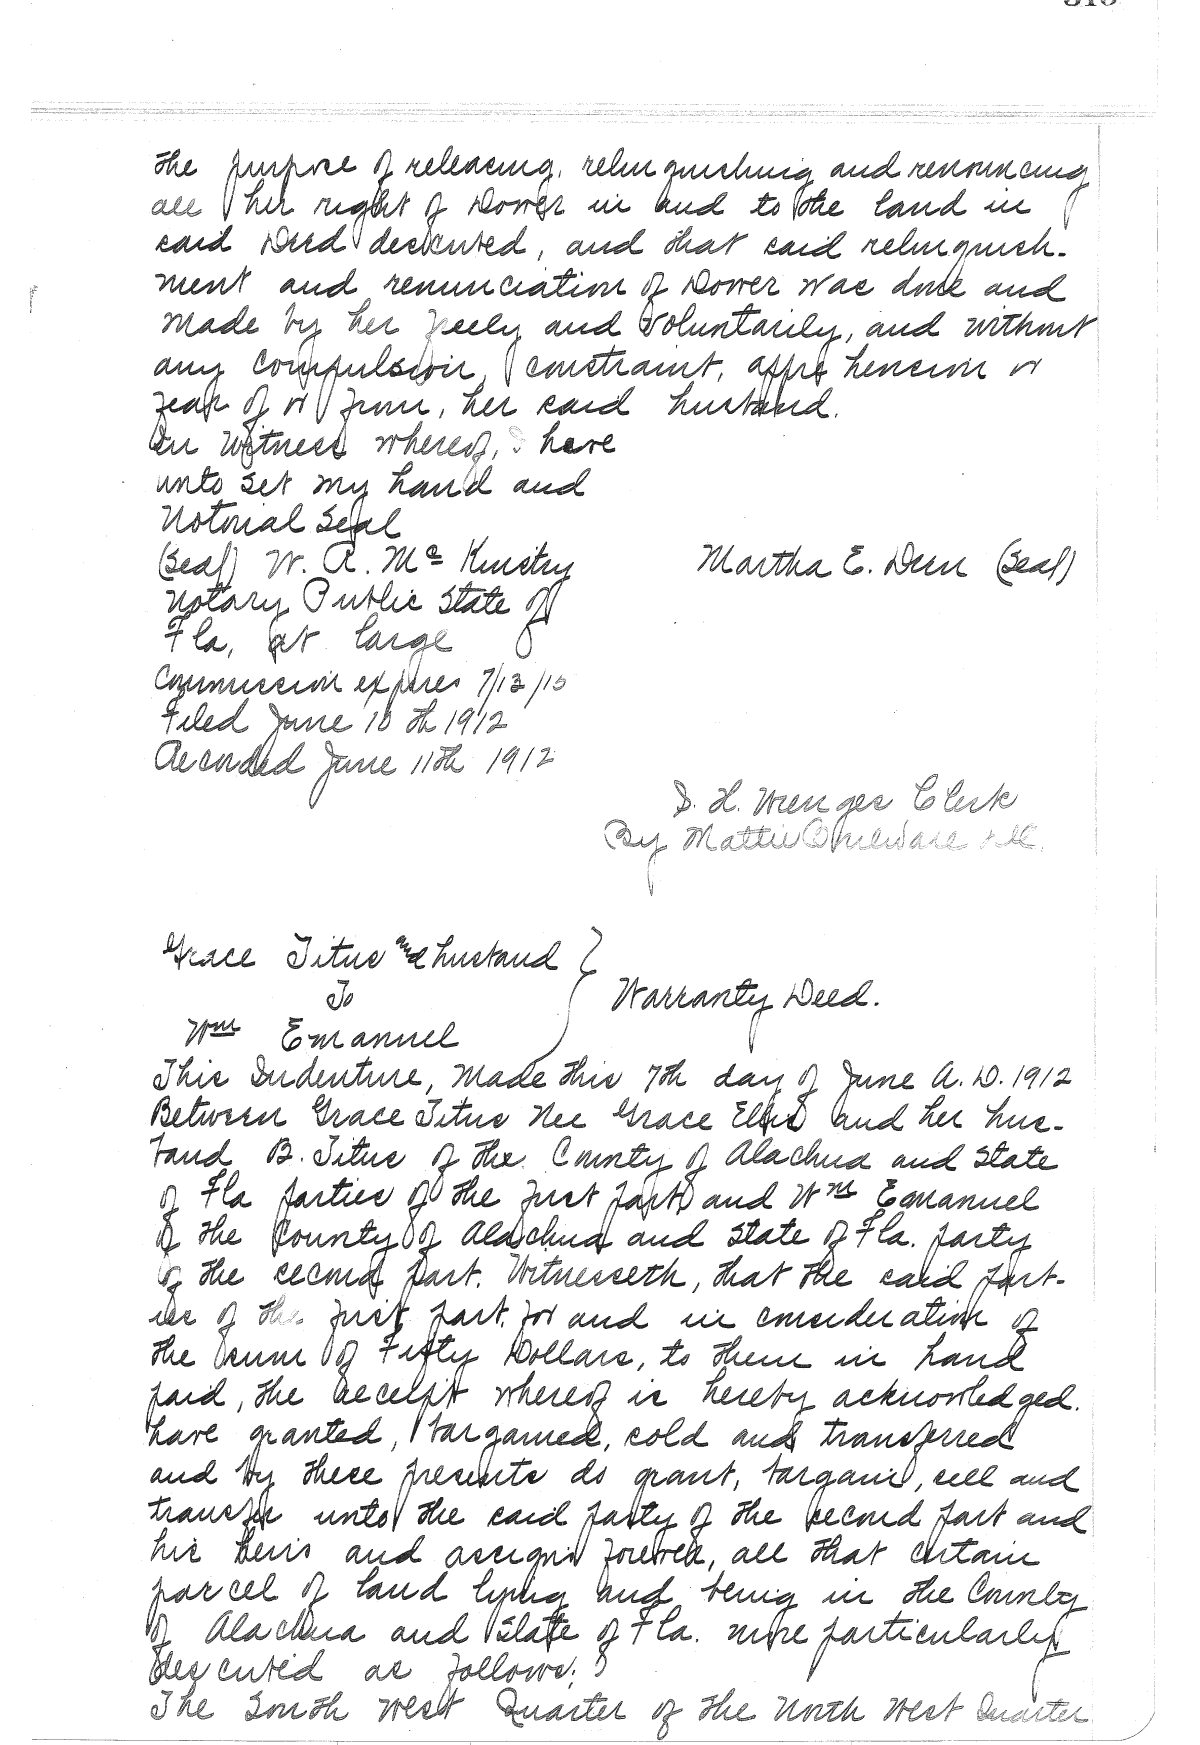 the purpose of releasing, relinquishing and renouncing
all her right of Dower in and to the land in
said Deed described, and that said relinquish-
ment and renunciation of Dower was done and
made by her freely and voluntarily, and without
any compulsion, constraint, apprehension or
fear of or from, her said husband.
In Witness whereof, I have
unto set my hand and
Notorial Seal
(Seal) W. A. Mc Kinstry Martha E. Deen (Seal)
Notary Public State of
Fla, at large
Commission expires 7/13/15
Filed June 10th 1912
Recorded June 11th 1912
S. H. Wienges Clerk
By Mattie
Grace Titus and husband
To
Warranty Deed.
Wm Emanuel
This Indenture, Made this 7th day of June A.D. 1912
Between Grace Titus Nee Grace Ellis and her hus-
band B. Titus of the County of Alachua and State
of Fla parties of the first part, and Wm Emanuel
of the County of Alachua and State of Fla. party
of the second part. Witnesseth, that the said part-
ies of the first part, for and in consideration of
the sum of Fifty Dollars, to them in hand
paid, the receipt whereof is hereby acknowledged.
have granted, bargained, sold and transferred
and by these presents do grant, bargain, sell and
transfer unto the said party of the second part and
his heirs and assigns forever, all that certain
parcel of land lying and being in the County
of Alachua and State of Fla. more particularly
described as follows:
The South West Quarter of the North West Quarter